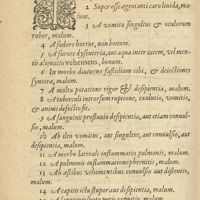 2 Super osse ægrotanti caro livida, ma-
lum.
3 A vomitu singultus & oculorum
rubor, malum.
4 A sudore horror, non bonum.
5 A furore dysenteria, aut aqua inter cutem, vel men-
tis alienatio vehemens, bonum.
6 In morbo diuturno fastidium cibi, & deiectiones
syncerae, malum.
7 A multa potatione rigor & desipientia, malum.
8 A tuberculi introrsum ruptione, exolutio, vomitus,
& animi defectio fit.
9 A sanguinis profluvio desipientia, aut etiam convul-
sio, malum.
10 Ab ileo vomitus, aut singultus, aut convulsio, aut
desipientia, malum.
11 A morbo laterali inflammatio pulmonis, malum.
12 A pulmonis inflammatione phrenitis, malum.
13 Ab æstibus vehementibus convulsio aut distentio,
malum.
14 A capitis ictu stupor aut desipientia, malum.